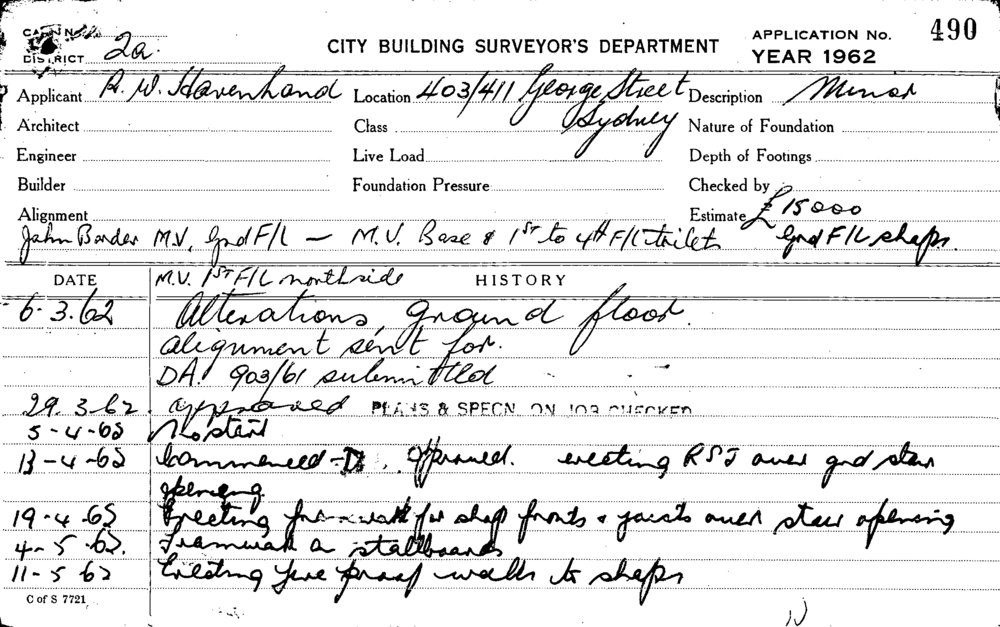 CARD No.
DISTRICT 2a.
CITY BUILDING SURVEYOR'S DEPARTMENT
APPLICATION No. 490
YEAR 1962
Applicant R. W. Havenhand Location 403/411 George Street Sydney Description Minor
Architect Class Nature of Foundation
Engineer Live Load Depth of Footings
Builder Foundation Pressure Checked by
Alignment Estimate £15000
John Bardee M.V. Gnd F/L — M.V. Base & 1st to 4th F/L toilets Gnd F/L shops.
DATE M.V. 1st F/L northside HISTORY
6.3.62 Alterations, ground floor.
alignment sent for.
DA. 903/61 submitted
29.3.62. approved PLANS & SPECN. ON JOB CHECKED
5-4-62 No start
13-4-62 Commenced approved. erecting RSJ over gnd stair
opening.
19-4-62 Erecting framework for shop fronts & joists over stair opening
4-5-62. Framework & stallboards
11-5 62 Erecting fire proof walls to shops
C of S 7721